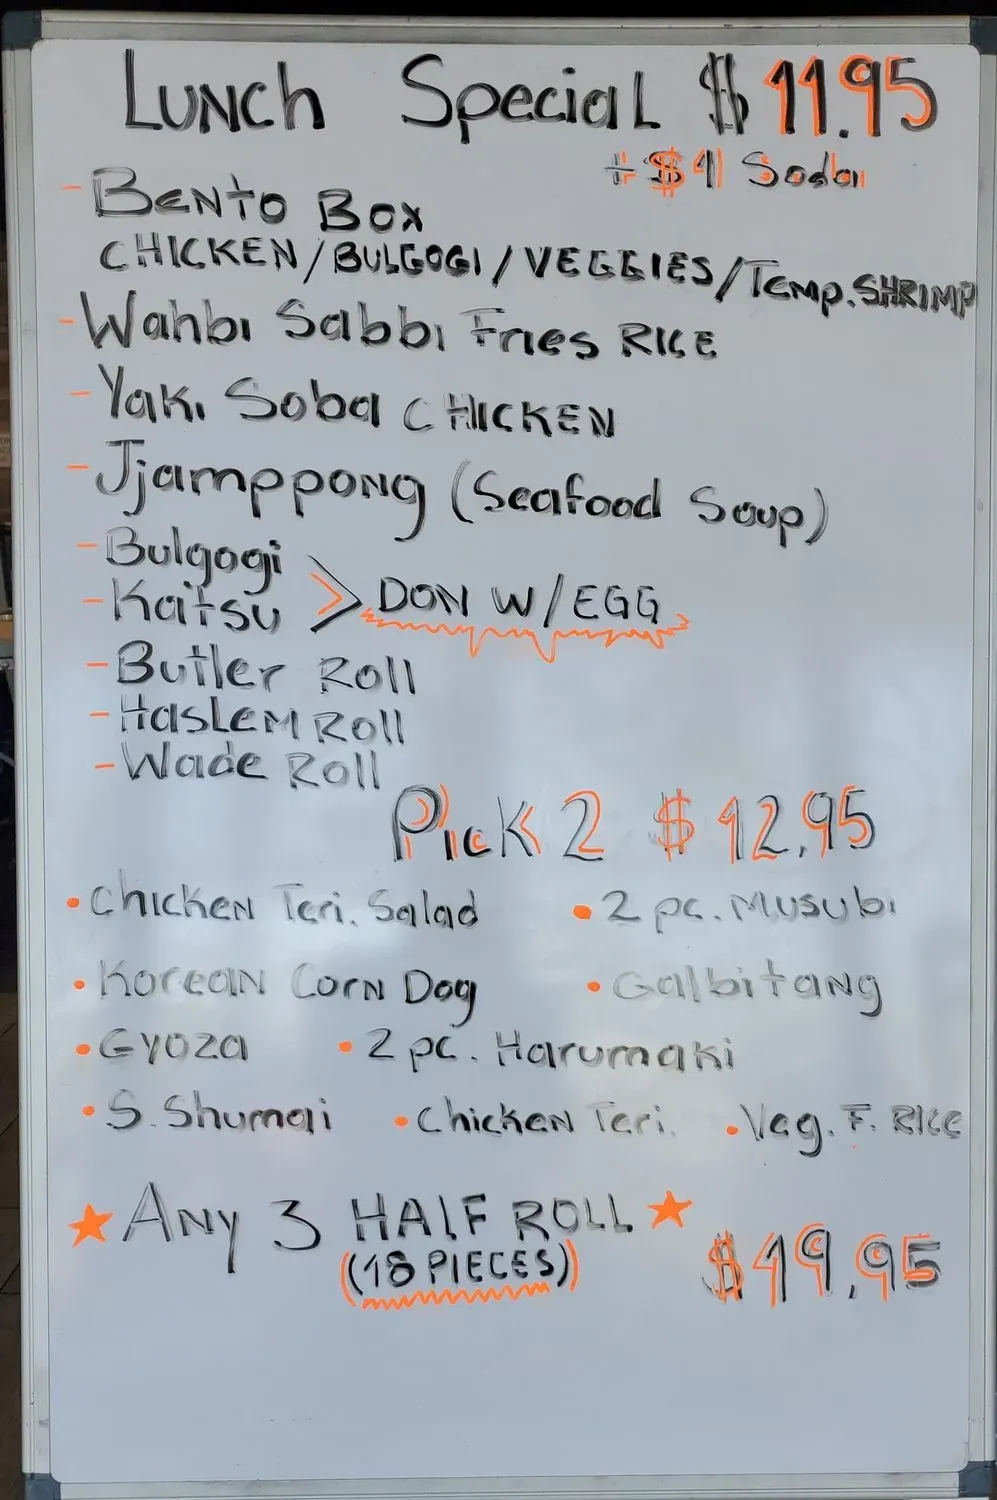 Lunch Special $11.95
+ $1 Soda
- Bento Box
CHICKEN/BULGOGI/VEGGIES/Temp.SHRIMP
- Wahbi Sabbi Fries RICE
- Yaki Soba CHICKEN
- Jjamppong (Seafood Soup)
- Bulgogi
- Kaitsu > DON W/EGG
- Butler Roll
- Haslem Roll
- Wade Roll
Pick 2 $12.95
• Chicken Teri. Salad • 2 pc. Musubi
• Korean Corn Dog • Galbitang
• Gyoza • 2 pc. Harumaki
• S. Shumai • Chicken Teri. • Veg. F. Rice
★ Any 3 HALF ROLL ★
(18 PIECES) $19.95